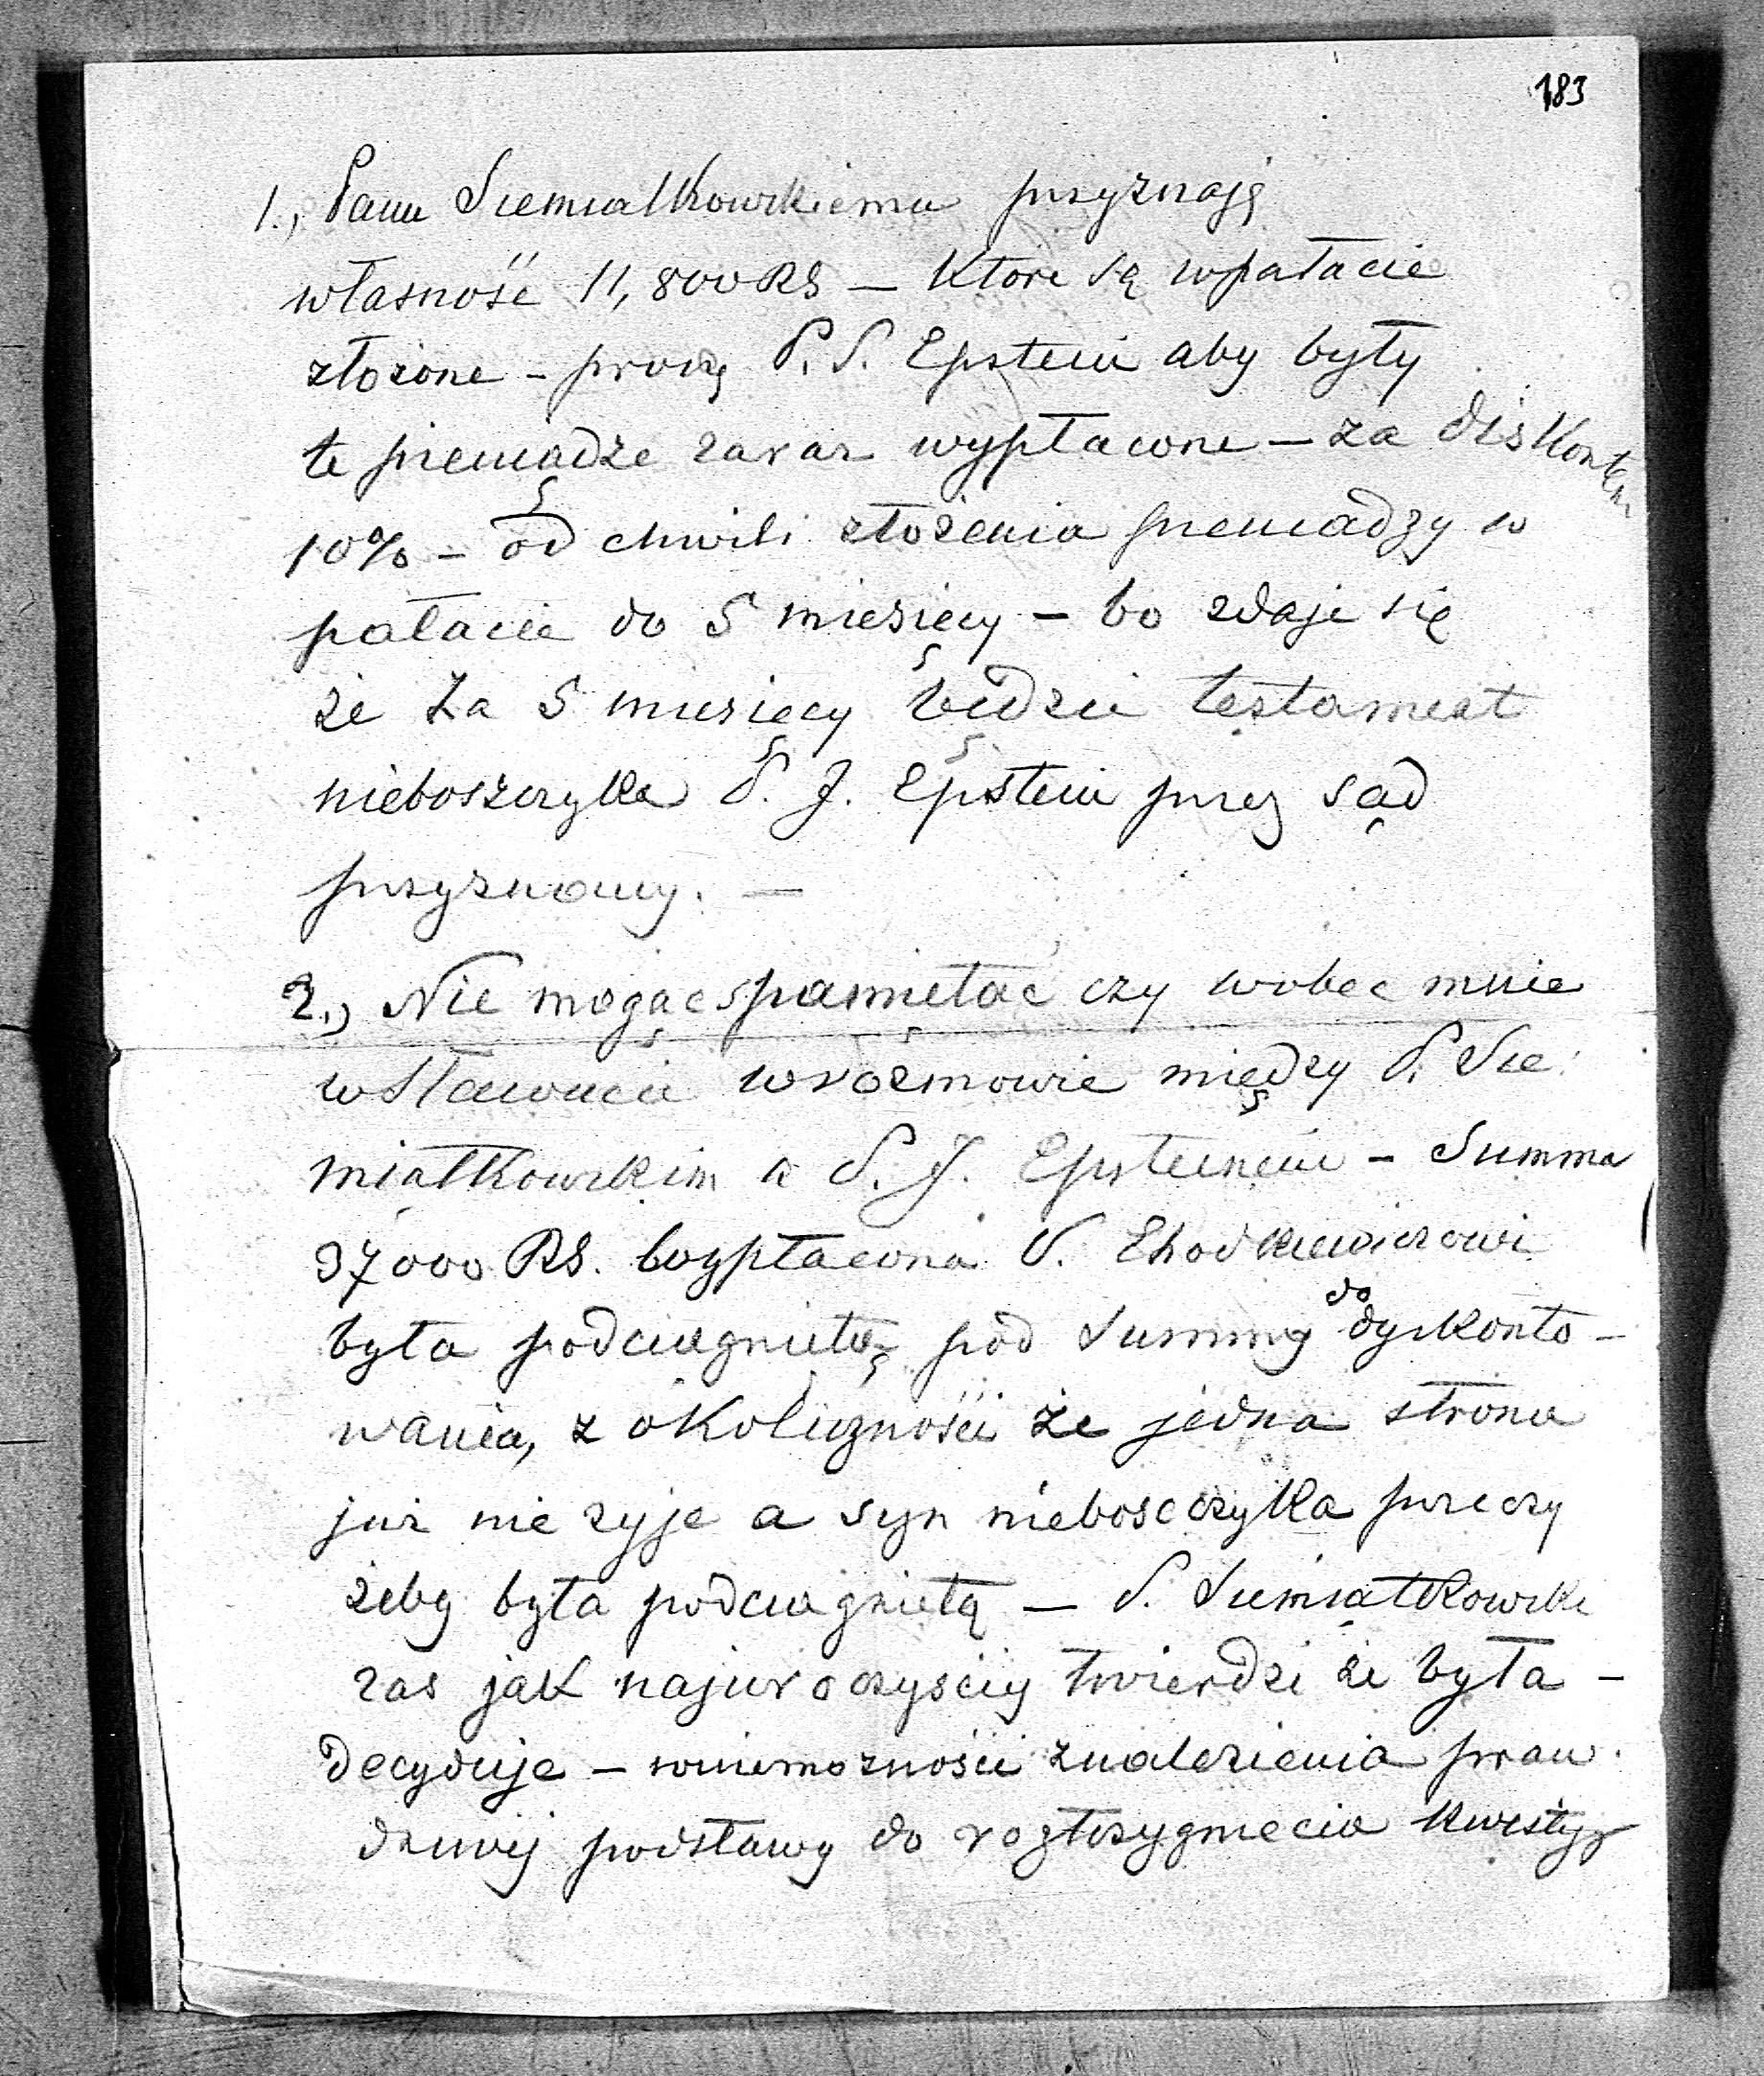 183
1., Panu Siemiatkowskiemu przyznaję
własność 11,800 RS — które są w pałacie
złożone — proszę P. S. Epstein aby były
te pieniadze zaraz wypłacone — za diskontem
10% — od chwili złożenia pieniadzy w
pałacie do 5 miesięcy — bo zdaje się
że za 5 miesięcy będzie testament
nieboszczyka P. J. Epstein przez sąd
przyznany. —
2., Nie mogąc spamiętać czy wobec mnie
w Sławucie w rozmowie między P. Sie
miątkowskim a P. J. Epsteinem — Summa
37000 RS. wypłacona P. Chodkiewiczowi
była podciagniętą pod Summy do dyskonto-
wania, z okoliczności że jedna strona
już nie zyje a syn nieboscczyka przeczy
żeby była podciagnietą — P. Siemiątkowski
zas jak najuroczyściej twierdzi że była —
decyduje — w niemożności znalezienia praw
dziwej podstawy do roztrzygniecia kwestyi